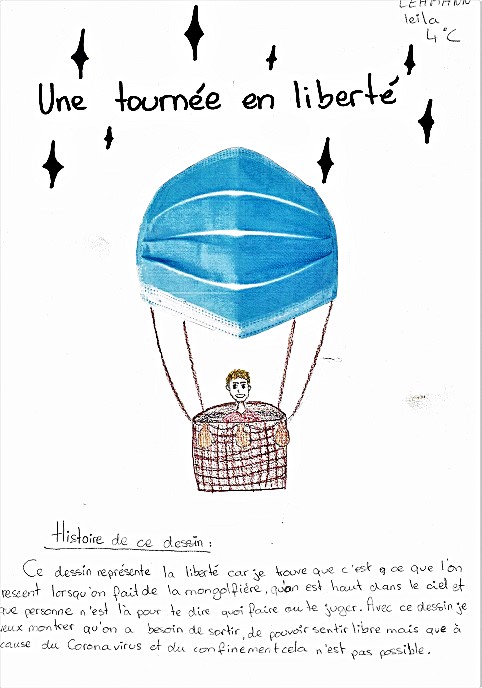 LEHMANN
leila
4°C
Une tournée en liberté
Histoire de ce dessin :
Ce dessin représente la liberté car je trouve que c'est ce que l'on
ressent lorsqu'on fait de la mongolfière, qu'on est haut dans le ciel et
que personne n'est là pour te dire quoi faire ou te juger. Avec ce dessin je
veux montrer qu'on a besoin de sortir, de pouvoir sentir libre mais que à
cause du Coronavirus et du confinement cela n'est pas possible.